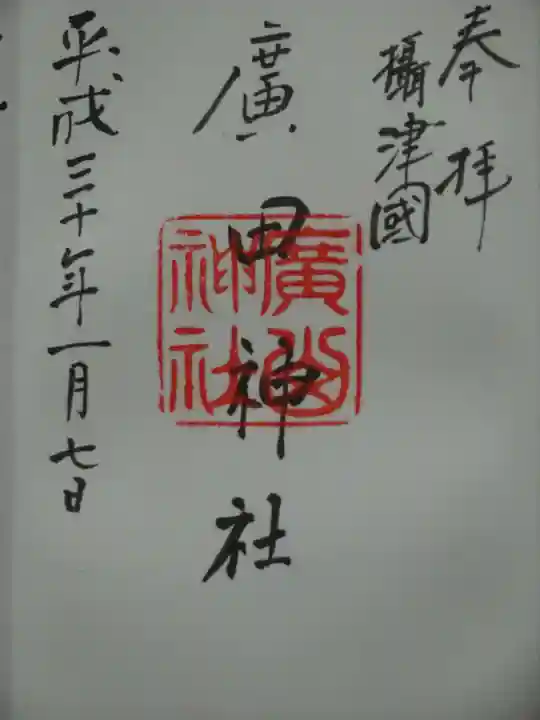 奉拝
攝津國
廣田神社
廣田神社
平成三十年一月七日